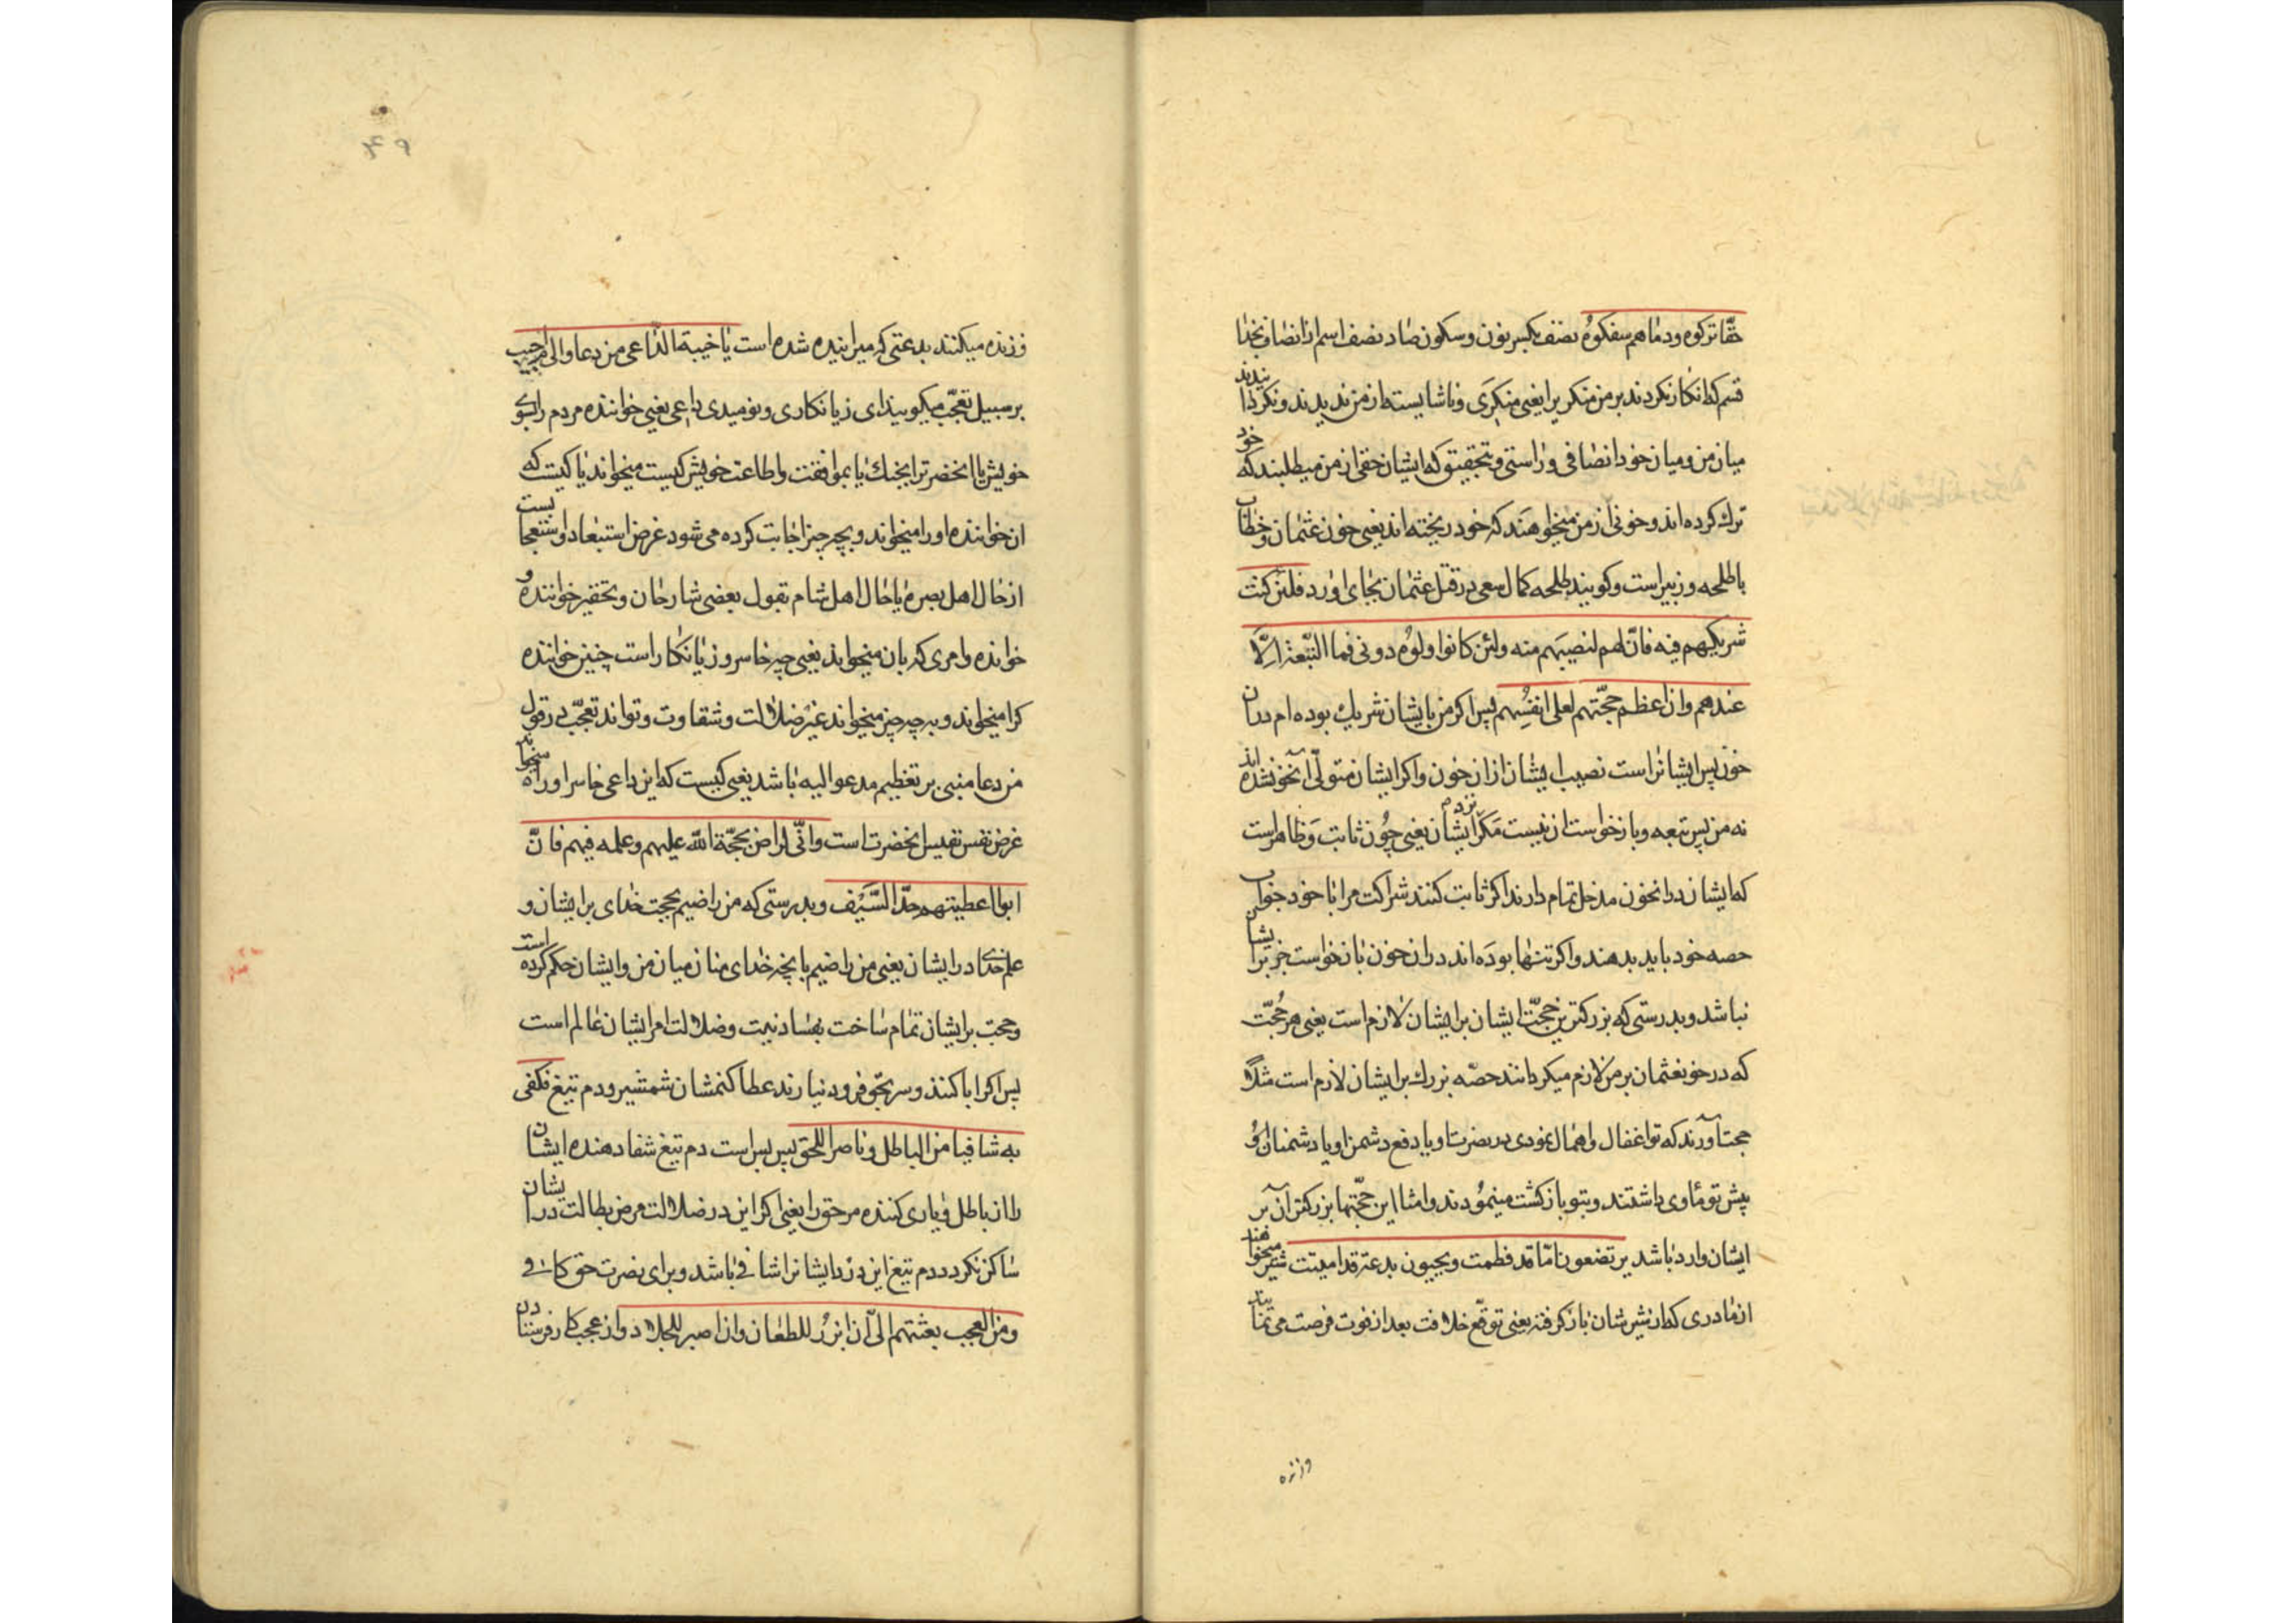 حقّا ترکوه ودماهم سفکوهُ نصف بکسر نون وسکون صاد نصف اسم از انصاف بخدا
قسم که انکار نکردند بر من منکر یرا یعنی منکرَی وناشایسته از من ندیدند ونکردانیدند
میان من ومیان خود انصافی وراستی وبتحقیق که ایشان حقی از من میطلبند که خود
ترک کرده اند وخونی از من میخواهند که خود ریخته اند یعنی خون عثمان وخطاب
با طلحه وزبیر است وکویند طلحه کمال سعی در قتل عثمان بجای اورد فلئن کنت
شریکهم فیه فانّ لهم لنصیبَهم منه ولئن کانوا ولوُه دونی فما التّبعة الّا
عندهم وانّ اعظم حجّتهم لعلی انفسُهم پس اکر من با ایشان شریک بوده ام در ان
خون پس ایشانراست نصیب ایشان از ان خون واکر ایشان متولّی آنخون شده اند
نه من پس تبعه وبازخواست ان نیست مکر نزد ایشان یعنی چوُن ثابت وظاهر است
که ایشان در انخون مدخل تمام دارند اکر ثابت کنند شراکت مرا با خود جواب
حصه خود باید بدهند واکر تنها بودَه اند در ان خون بازخواست جز بر ایشان
نباشد وبدرستی که بزرکترین حجّت ایشان بر ایشان لازم است یعنی هر حُجّت
که در خون عثمان بر من لازم میکردانند حصّه بزرک بر ایشان لازم است مثلًا
حجت آورند که تو اغفال واهمال نمودی در نصرت او یا دفع دشمن او یا دشمنان اوُ
پیش تو ماوی داشتند وبتو بازکشت مینموُدند وامثال این حجّتها بزرکتر آن بر
ایشان وارد باشد یرتضعون امّا قد فطمت ویحیون بدعة قد امیتت شیر میخواهند
از مادری که از شیر شان باز کرفته یعنی توقّع خلافت بعد از فوت فرصت می نمایند
وزنده
۴۹
وزنده میکنند بدعتی که میرانیده شده است یا خیبة الدّاعی من دعا والی م اجیب
بر سبیل تعجّب میکویند ای زیانکاری ونومیدی داعی یعنی خواننده مردم را بسوی
خویش یا انحضرترا بجنک یا بموافقت واطاعت خویش کیست میخواند یا کیست که
ان خواننده او را میخواند وبچه چیز اجابت کرده می شود غرض استبعاد واستعجابست
از حال اهل بصره یا حال اهل شام بقول بعضی شارحان وتحقیر خواننده و
خوانده وامری که بان میخواند یعنی چه خاسر وزیانکار است چنین خواننده
کرا میخواند وبه چه چیز میخواند غیر ضلالت وشقاوت وتواند تعجّب در قول
من دعا مبنی بر تعظیم مدعو الیه باشد یعنی کیست که این داعی خاسر او را میخواند
غرض نفس نفیس انحضرت است وانّی لراض بحجّة الله علیهم وعلمه فیهم فانّ
ابوا اعطیتهم حدّ السّیَف وبدرستی که من راضیم بحجت خدای بر ایشان و
علم خدای در ایشان یعنی من راضیم بانچه خدای منان میان من وایشان حکم کرده است
وحجت بر ایشان تمام ساخت بفساد نیت وضلالت امر ایشان عالم است
پس اکر ابا کنند وسر بحق فرود نیارند عطا کنمشان شمشیر ودم تیغ فکفی
به شافیا من الباطل وناصرا للحق پس بس است دم تیغ شفا دهنده ایشان
را از باطل ویاری کننده مر حق را یعنی اکر این در ضلالت مرض بطالت در ایشان
ساکن نکردد دم تیغ این درد ایشانرا شافی باشد وبرای نصرت حق کافی
ومن العجب بعثتهم الیّ ان ابرُز للطعان وان اصبر للجلاد واز عجب کار فرستادن